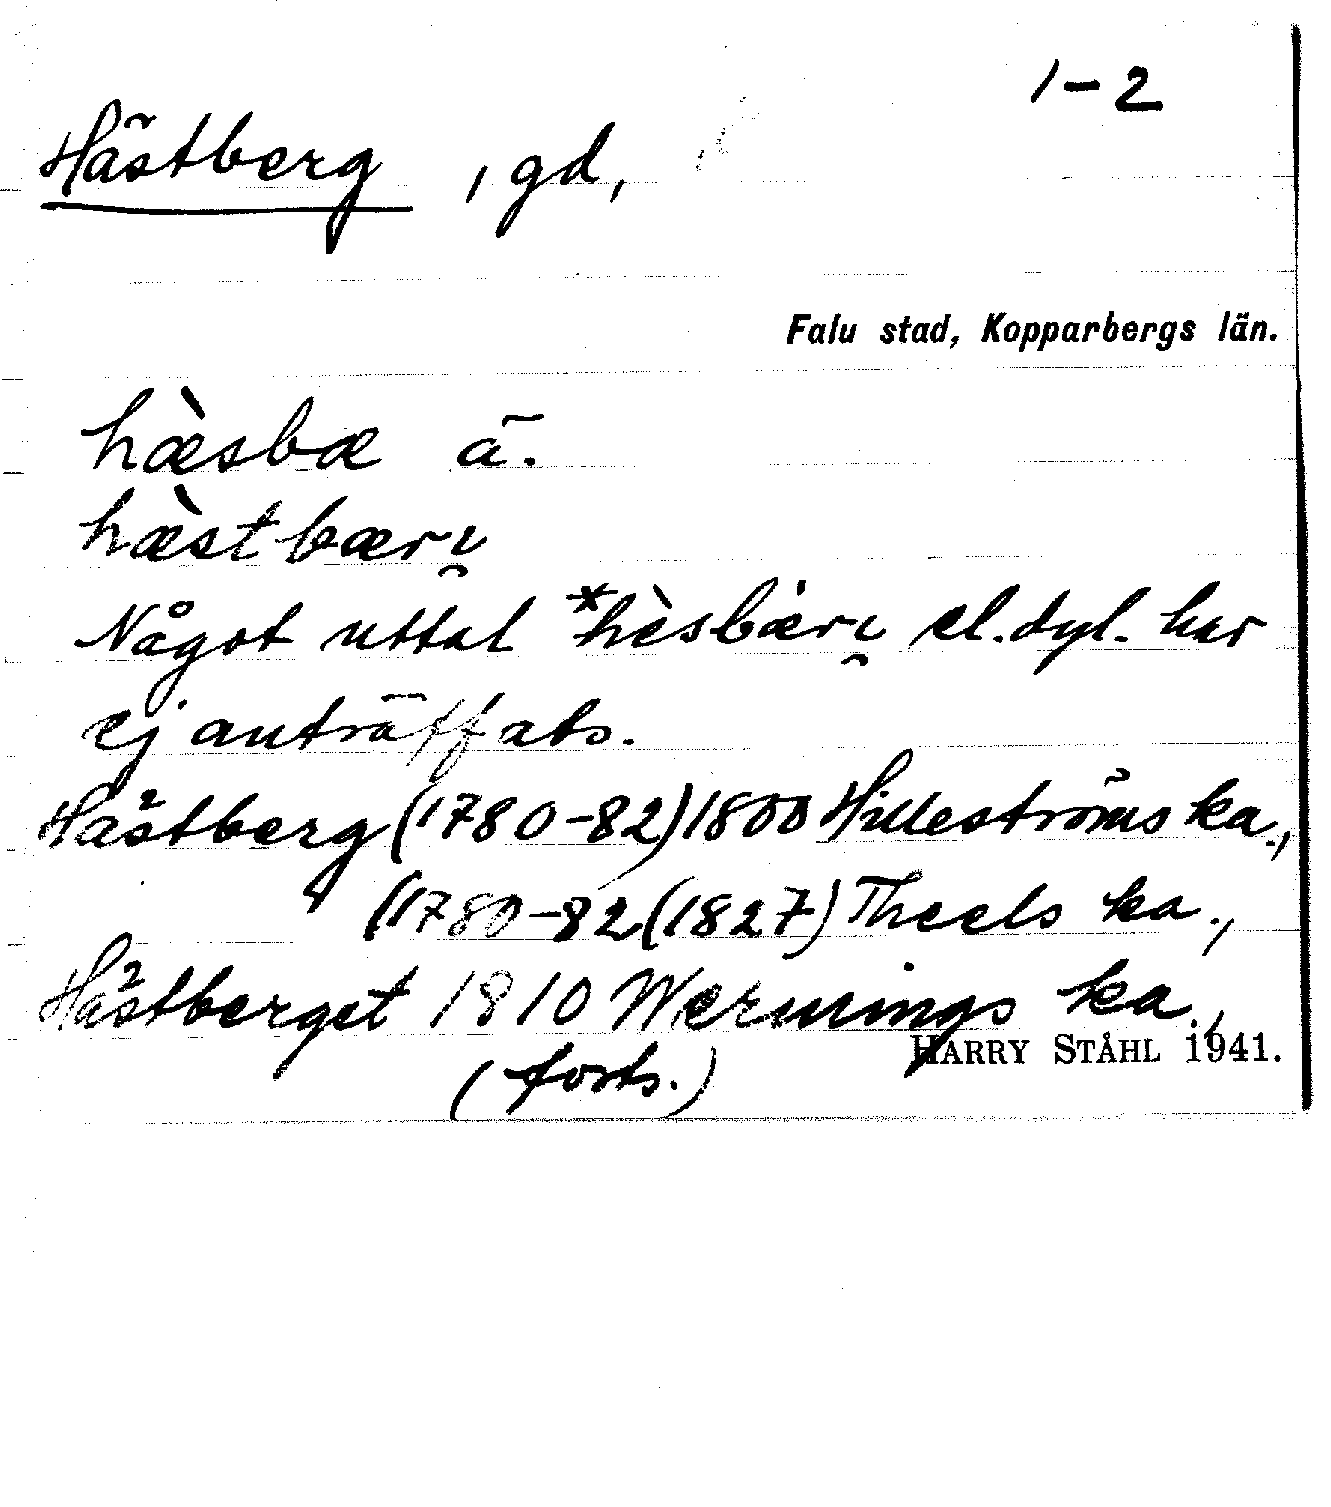 1-2
Hästberg , gd,
Falu stad, Kopparbergs län.
hæ̀sbæ ä.
hæ̀stbærι̯
Något uttal *hèsbærι̯ el. dyl. har
ej anträffats.
Hästberg (1780-82) 1800 Hilleströms ka.,
(1780-82 (1827) Theels ka.,
Hästberget 1810 Wermings ka.,
(forts.)
HARRY STÅHL 1941.